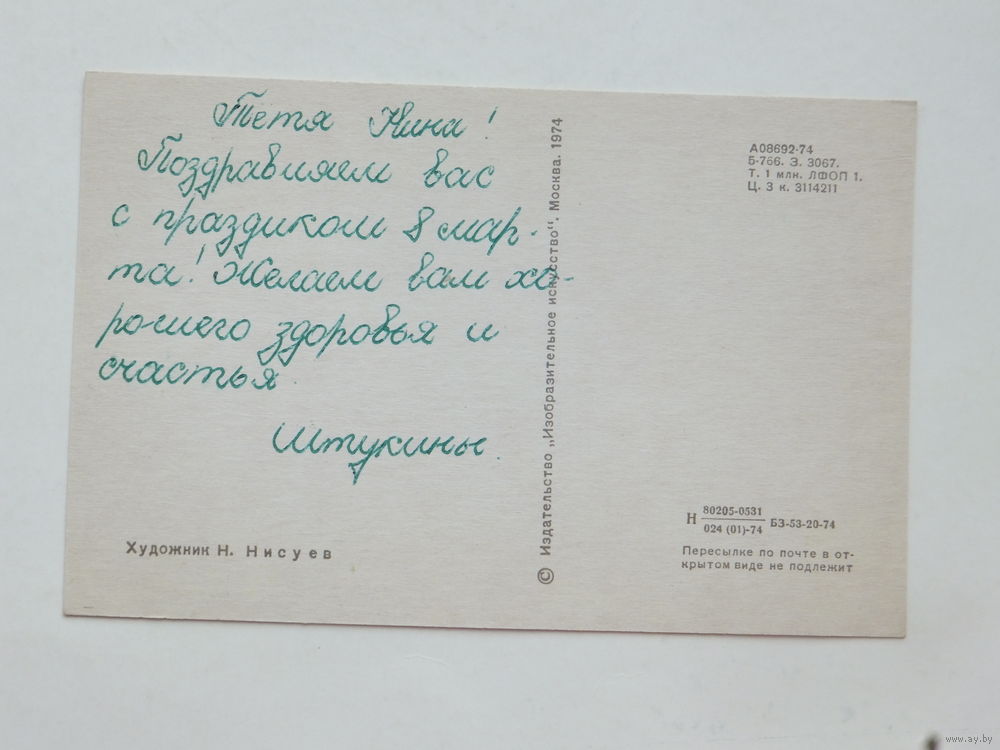 Тетя Нина!
Поздравляем вас
с праздиком 8 мар-
та! Желаем вам хо-
рошего здоровья и
счастья
Штукины.
Художник Н. Нисуев
© Издательство „Изобразительное искусство“. Москва. 1974
А08692-74
Б-766. З. 3067.
Т. 1 млн. ЛФОП 1.
Ц. 3 к. 3114211
Н 80205-0531
024 (01)-74 БЗ-53-20-74
Пересылке по почте в от-
крытом виде не подлежит
www.ay.by